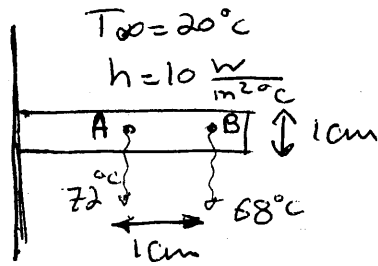 T∞ = 20°C
h = 10 W/m²°C
A B
1cm
72°C 68°C
1cm